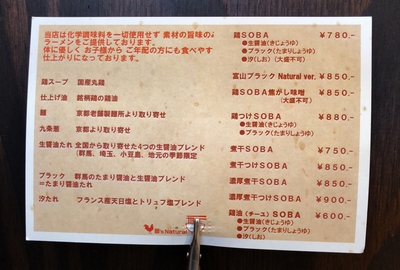 当店は化学調味料を一切使用せず 素材の旨味の
ラーメンをご提供しております。
体に優しく お子様から ご年配の方にも食べやす
仕上がりになっております。
鶏スープ 国産丸鶏
仕上げ油 銘柄鶏の鶏油
麺 京都老舗製麺所より取り寄せ
九条葱 京都より取り寄せ
生醤油たれ 全国から取り寄せた4つの生醤油ブレンド
(群馬、埼玉、小豆島、地元の季節限定
ブラック 群馬のたまり醤油と生醤油ブレンド
=たまり醤油たれ
汐たれ フランス産天日塩とトリュフ塩ブレンド
鶏's Natural
鶏SOBA ¥780.-
●生醤油(きじょうゆ)
●ブラック(たまりしょうゆ)
●汐(しお) (大盛不可)
富山ブラック Natural ver. ¥850.-
鶏SOBA焦がし味噌 ¥850.-
(大盛不可)
鶏つけSOBA ¥880.-
●生醤油(きじょうゆ)
●ブラック(たまりしょうゆ)
煮干SOBA ¥750.-
煮干つけSOBA ¥850.-
濃厚煮干SOBA ¥850.-
濃厚煮干つけSOBA ¥900.-
鶏油(チーユ)SOBA ¥600.-
●生醤油(きじょうゆ)
●ブラック(たまりしょうゆ)
●汐(しお)